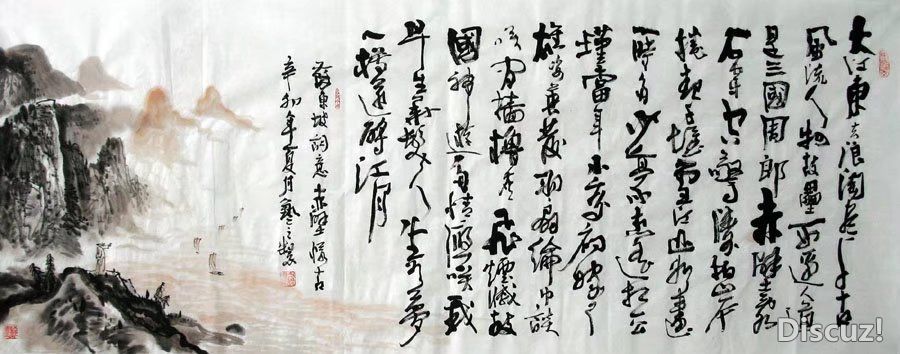 大江東去浪淘尽千古
風流人物故壘西邊人道
是三國周郎赤壁乱
石穿空驚濤拍岸
捲起千堆雪江山如畫
一時多少豪杰遥想公
瑾當年小喬初嫁了
雄姿英發羽扇綸巾談
笑间檣櫓灰飛煙滅故
國神遊多情應笑我
早生華髮人生如夢
一樽還酹江月
蘇東坡詞意赤壁懷古
辛卯年夏月藝之製
Discuz!